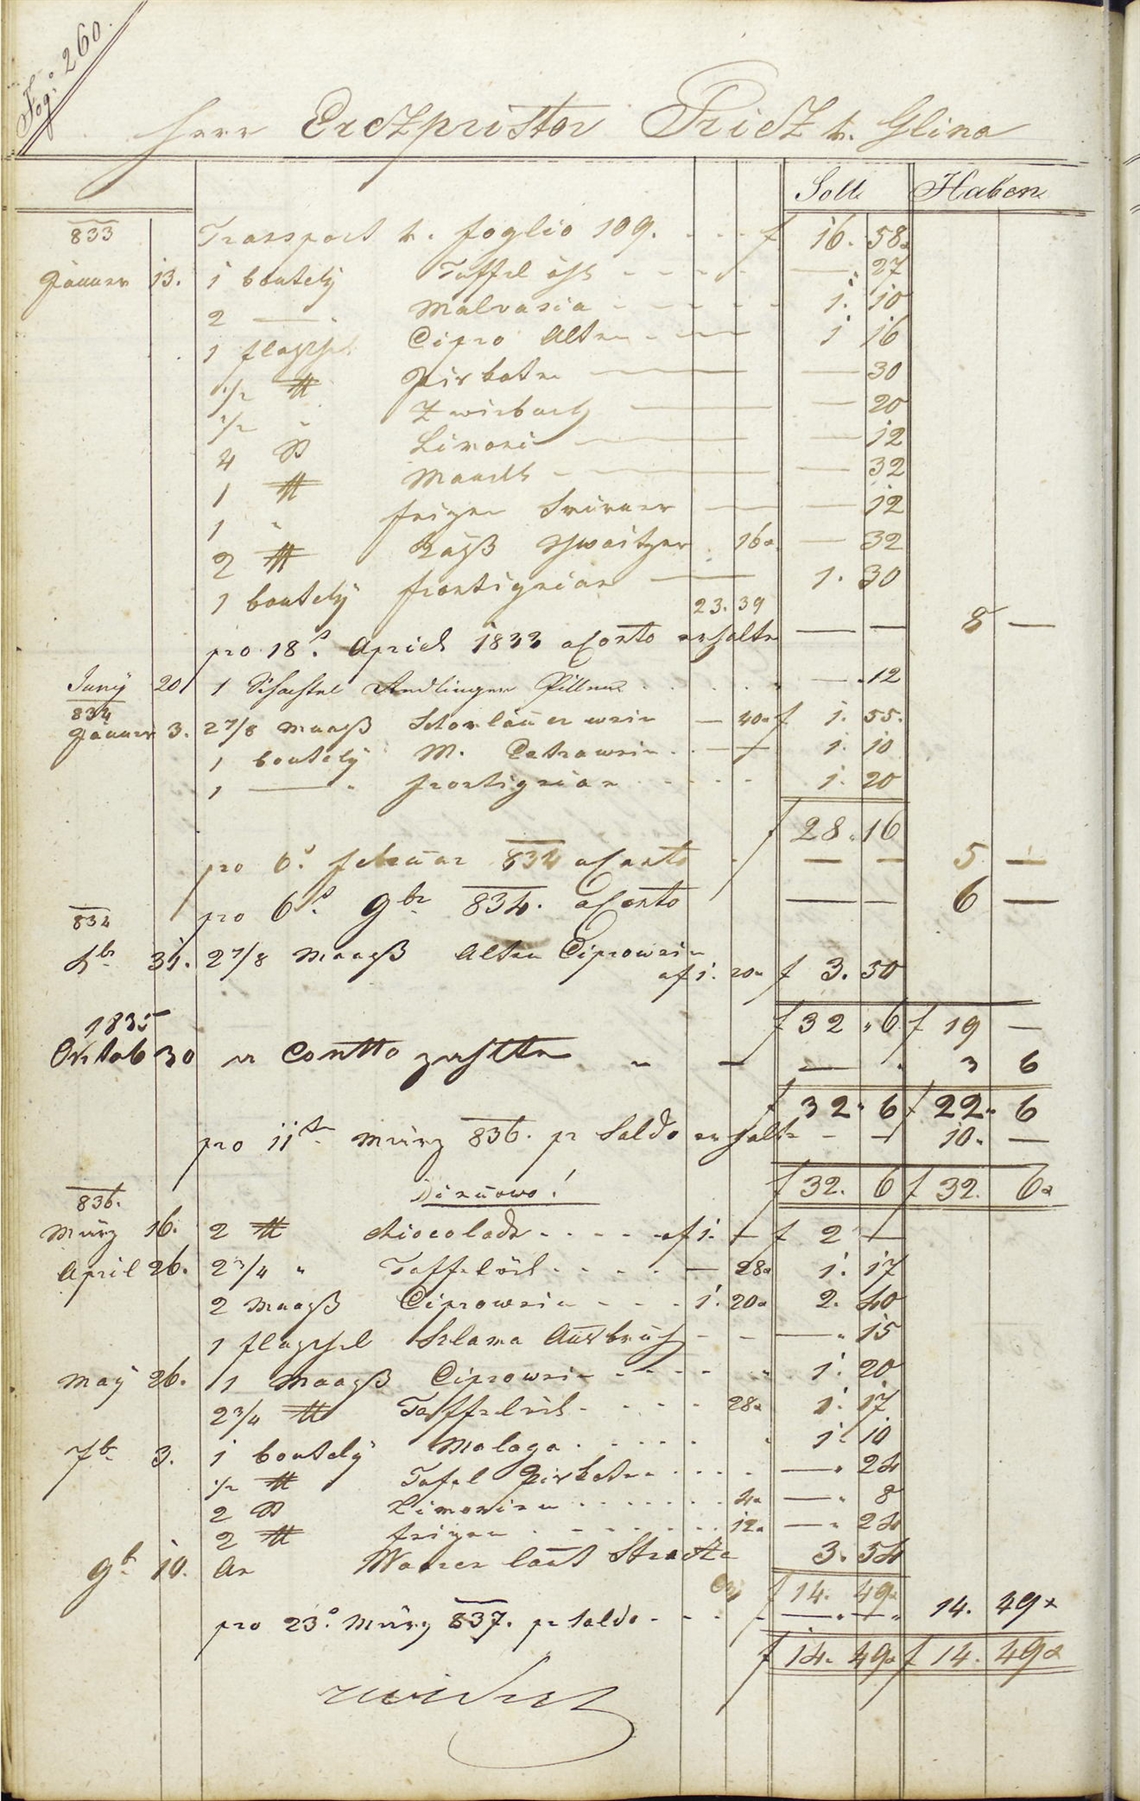 Fog: 260.
Herr Erczpristor Pricz v. Glina
Solli Haben
833 Transport v. foglio 109. f 16. 58
Jänner 13. 1 boutely Taffel öhl — 27
2 — Malvasia 1. 10
1 flaschl Cipro Alten 1 16
1/2 ℔ — 30
1/2 " Zwieback — 20
4 Limoni — 12
1 ℔ Mandl — 32
1 " feigen — 12
2 ℔ Käß schweitzer 16 — 32
1 boutely frontignian 1. 30
23. 39
pro 18. April 1833 aConto erhalten — — 8 —
Juny 20 1 Schachtel Pillen — 12
834
Jänner 3. 2 7/8 Maaß wein — 40 f 1. 55.
1 boutely M. wein 1. 10
1 — " frontignian 1. 20
f 28. 16
pro 6. februar 834 aConto — — 5 —
pro 6. 9br 834. aConto — — 6 —
834
31. 2 7/8 Maaß Alten Ciprowein
af 1. 20 f 3. 50
f 32 " 6 f 19 —
1835
Oktob 30 a Contto zahltte " — — 3 6
f 32 " 6 f 22 " 6
pro 11tn März 836. pr Saldo erhalte — — 10. —
f 32. 6 f 32. 6
836. Dinuovo!
März 16. 2 ℔ chiocolade af 1. — f 2 —
April 26. 2 3/4 " Taffelöhl — 28 1. 17
2 Maaß Ciprowein 1. 20 2. 40
1 flaschl Ausbruch — 15
May 26. 1 Maaß Ciprowein 1. 20
2 3/4 ℔ Taffelöhl 28 1. 17
7b 3. 1 boutely Malaga 1. 10
1/2 ℔ Tafel — 24
2 Limonien 4 — 8
2 ℔ feigen 12 — 24
9b 10. An Waren laut Strazze 3. 54
f 14. 49
pro 23. März 837. pr Saldo — — 14. 49
f 14. 49 f 14. 49